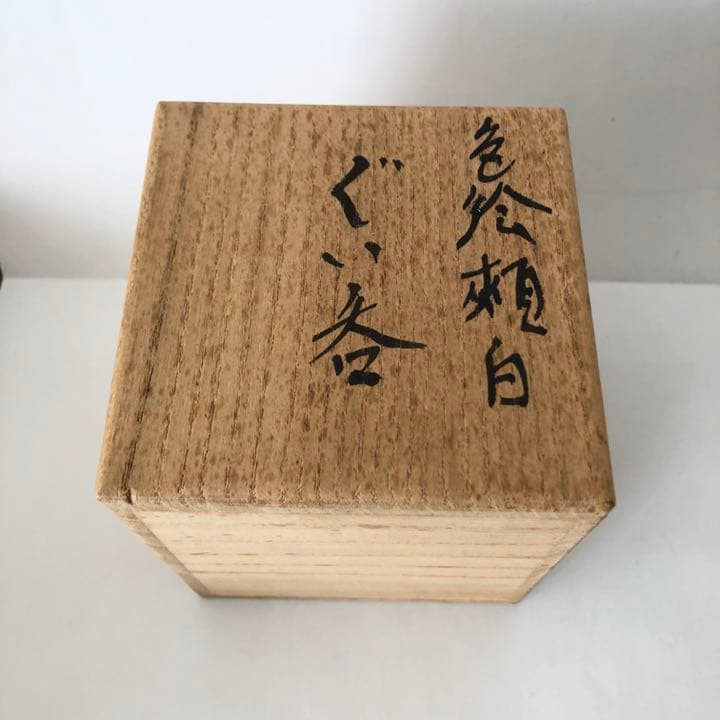 色絵頬白
ぐい呑